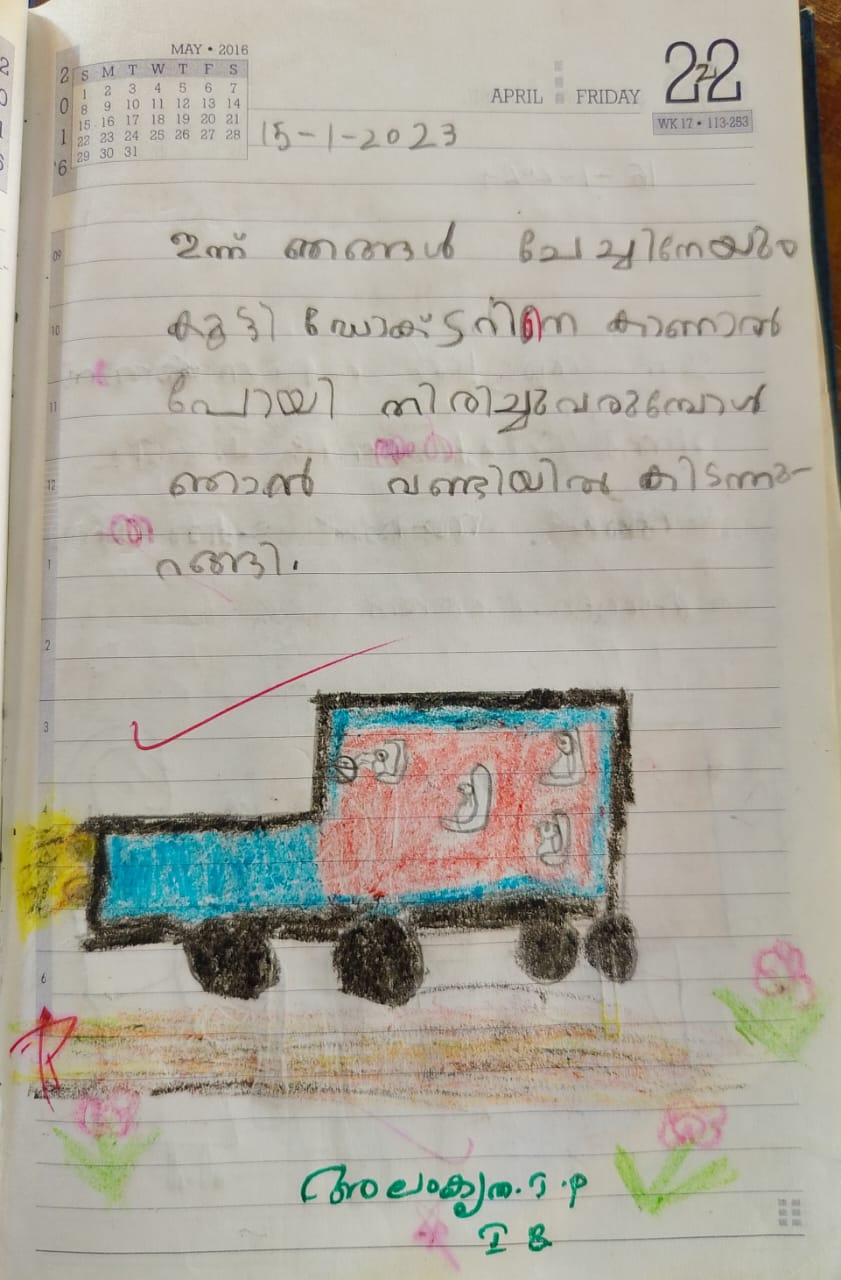 MAY • 2016
S M T W T F S
1 2 3 4 5 6 7
8 9 10 11 12 13 14
15 16 17 18 19 20 21
22 23 24 25 26 27 28
29 30 31
2016
APRIL FRIDAY 22
WK 17 • 113-253
15-1-2023
ഇന്ന് ഞങ്ങൾ ചേച്ചിനേയും
കൂട്ടി ഡോക്ടറിനെ കാണാൻ
പോയി തിരിച്ചുവരുമ്പോൾ
ഞാൻ വണ്ടിയിൽ കിടന്നു-
റങ്ങി.
09
10
11
12
1
2
3
4
6
അലംകൃത. ടി. P
I B